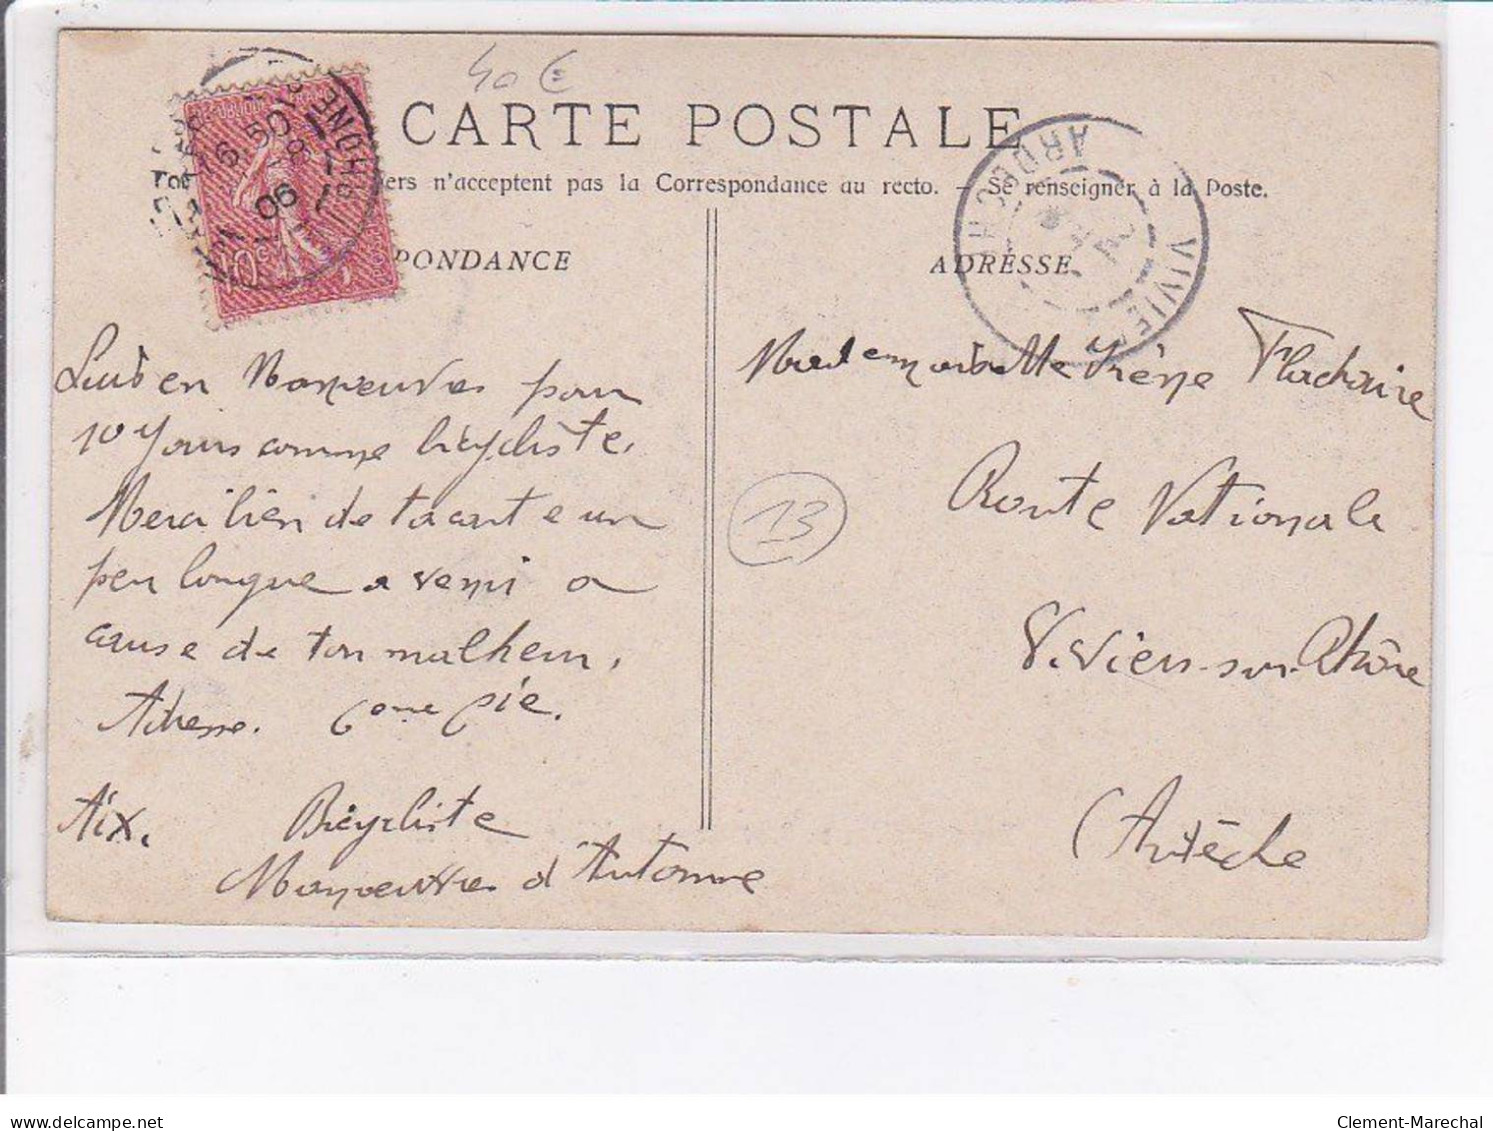 40 €
CARTE POSTALE
ers n'acceptent pas la Correspondance au recto. – Se renseigner à la Poste.
PONDANCE
ADRESSE
RHONE
6.50
06
VIVIE
ARDECH
Suis en Manoeuvres pour
10 Jours comme bicycliste.
Merci bien de ta carte un
peu longue a venir a
cause de ton malheur.
Adresse. 6eme Cie.
Aix. Bicycliste
Manoeuvres d'Automne
Mademoiselle Irène Flachaire
Route Nationale
Viviers-sur-Rhône
(Ardèche
13
delcampe.net
Clement-Marechal